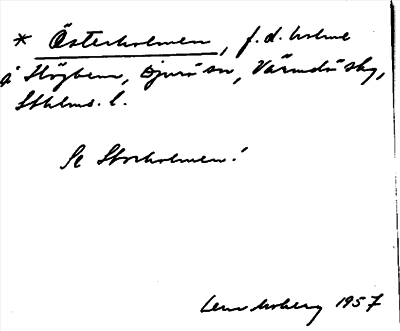 * Österholmen, f.d. holme
å Högben, Djurö sn, Värmdö skg,
Sthlms. l.
Se Storholmen!
1957